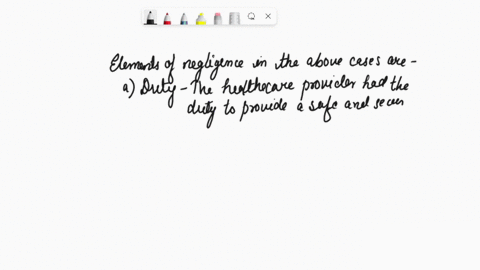 Elements of negligence in the above cases are -
a) Duty - The healthcare provider had the
duty to provide a safe and secur